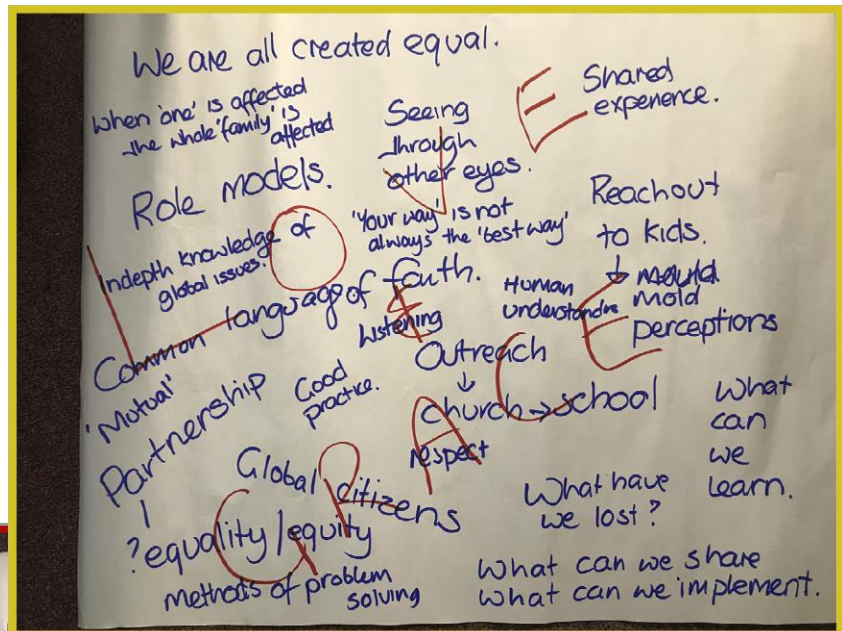 We are all created equal.
When 'one' is affected
the whole 'family' is
affected
Seeing
through
other eyes.
Shared
experience.
Role models.
Indepth knowledge of
global issues.
'Your way' is not
always the 'best way'
Reachout
to kids.
↓ mould
mold
perceptions
Common language of faith.
Listening
Human
understanding
'Mutual'
Partnership
Good
practice.
Outreach
↓
church → school
respect
What
can
we
learn.
Global citizens
? equality / equity
methods of problem
solving
What have
we lost?
What can we share
What can we implement.
L O V E
&
G R A C E